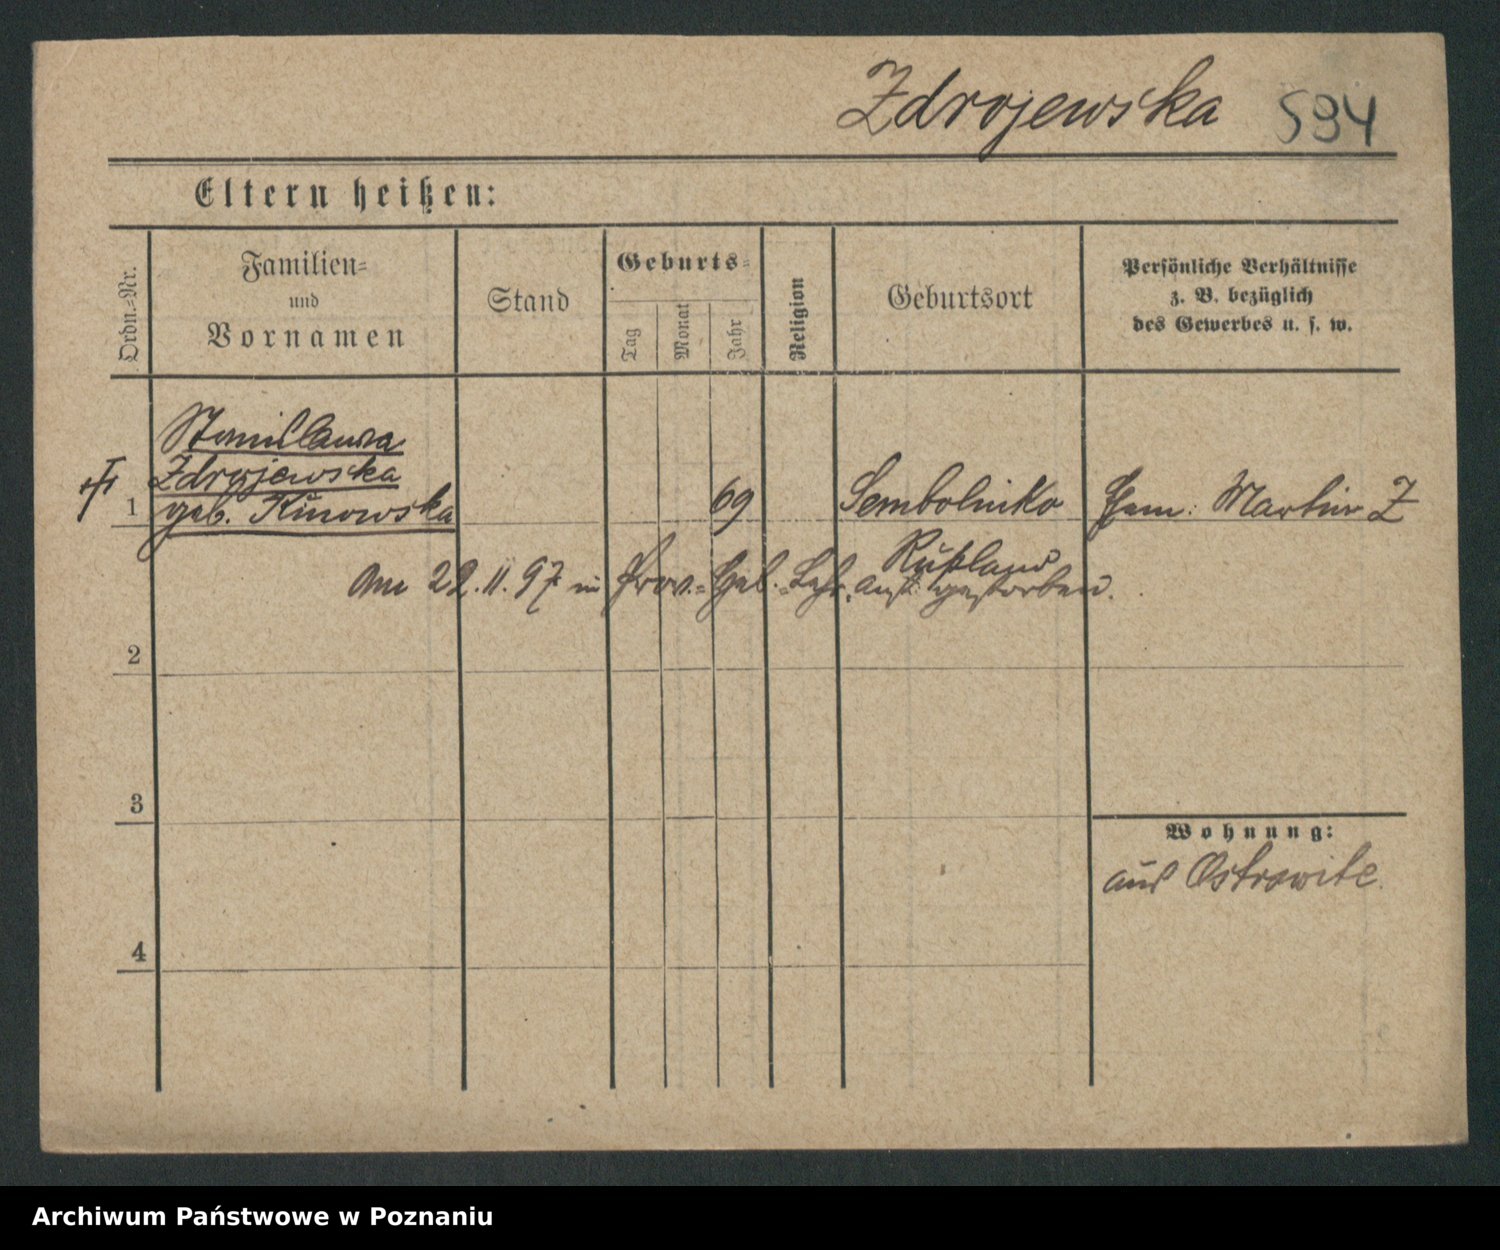 Zdrojewska 594
Eltern heißen:
Ordn.-Nr.
Familien-
und
Vornamen
Stand
Geburts-
Tag
Monat
Jahr
Religion
Geburtsort
Persönliche Verhältnisse
z. B. bezüglich
des Gewerbes u. s. w.
Stanislawa
Zdrojewska
geb. Kinowska
1
69
Sembolniko
Rußland
Martin Z
am 22. 11. 97 in Prov.-Geb.-Lehr.anst. gestorben.
2
3
4
Wohnung:
aus Ostrowite
Archiwum Państwowe w Poznaniu